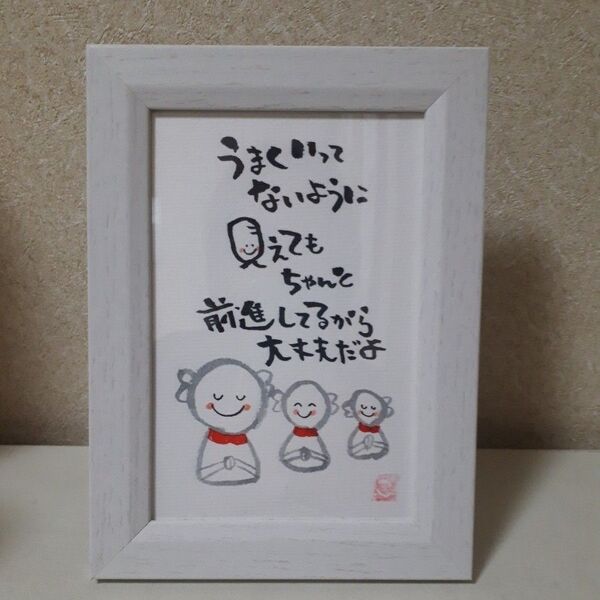 うまくいって
ないように
見えても
ちゃんと
前進してるから
大丈夫だよ